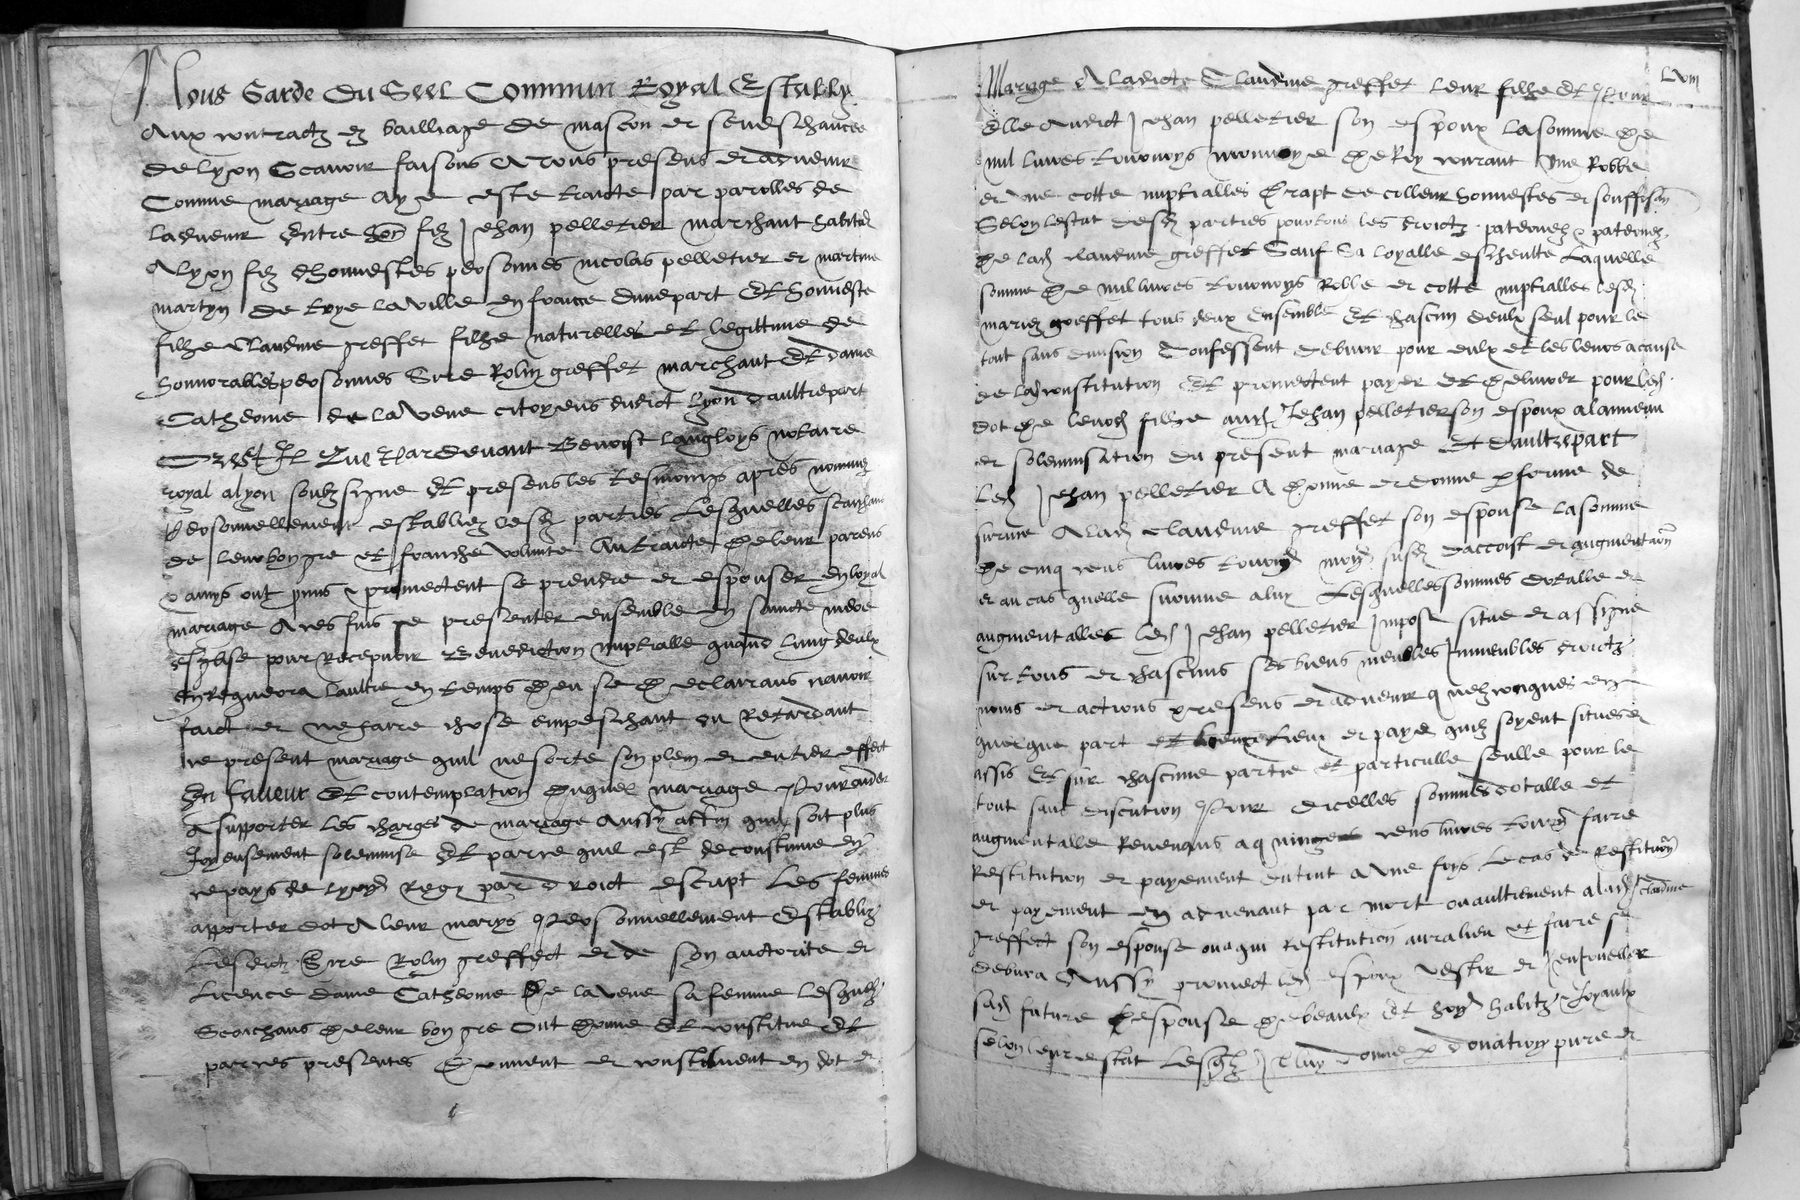 Nous Garde Du Seel Commun Royal Establly
Aux contractz ez bailliage de mascon et seneschaucee
de lyon Scavoir faisons A tous presens et advenir
Comme mariage Aye este traicte par parolles de
ladvenir Entre hon filz Jehan pelletier marchant habitant
A lyon filz dhonnestes personnes nicolas pelletier et martine
martyn de troye la ville en france dune part Et honneste
filhe Claudine greffet filhe naturelles et legittime de
honnorables personnes Sire Rolin greffet marchant Et dame
Catherine de la Vene citoyens dudict lyon daultrepart
Cest Il Que Pardevant Benoist langloys notaire
royal a lyon soubzsigne Et presens les tesmoings apres nommez
Personnellement establiz lesd parties Lesquelles scaichans
de leur bon gre et franche volunte Au traicte de leur parens
& amys ont prins & promectent se prendre et espouser en loyal
mariage A ces fins se presenter ensemble en saincte mere
Esglise pour Recepvoir Benediction nuptialle quand lung deulx
En Requerra laultre en temps deu se declairans navoir
faict et ne faire chose empeschant ou Retardant
ce present mariage quil ne sorte son plein et entier effect
En faveur Et contemplation duquel mariage Pour aider
A supporter les charges de mariage Aussy affin quil soit plus
Joyeusement solempnise Et parce quil est de coustume en
ce pays de lyon Regy par droict escript Les femmes
apporter dot A leur marys Personnellement Establiz
Lesdictz Sire Rolin greffet et de son auctorite et
licence dame Catherine de la Vene sa femme Lesquelz
Scaichans de leur bon gre Ont donne Et constitue Et
par ces presentes Donnent et constituent en dot et
LVIII
Mariage A ladicte Claudine greffet leur filhe Et Pour
Elle Audict Jehan pelletier son espoux La somme de
mil livres tournoys monnoye de Roy courant Une Robbe
et une cotte nuptialles de colleur honnestes et souffisan
Selon lestat desd parties pour tous les droictz paternelz & maternelz
de lad claudine greffet Sauf Sa loyalle escheutte Laquelle
somme de mil livres tournoys Robbe et cotte nuptialles lesd
mariez greffet tous deux Ensemble Et chascun deulx seul pour le
tout sans division Confessent debvoir pour eulx et les leurs a cause
de lad constitution Et promectent payer Et delivrer pour led
dot de leurd filhe aud Jehan pelletier son espoux a lanneau
et solempnisation du present mariage Et daultrepart
Led Jehan pelletier A donne et donne par forme de
survie A lad claudine greffet son espouse La somme
de cinq cens livres tournoys monn susd daccroist et augmentation
et au cas quelle survive a luy Lesquelles sommes dotalle et
augmentalles led Jehan pelletier Impose situe et assigne
sur tous et chascuns ses biens meubles Immeubles droictz
noms et actions presens et advenir quelzconques en
quelque part et pays quilz soyent situes et
assis Et sur chascune partie et particulle seulle pour le
tout sans discution Pour dicelles sommes dotalle et
augmentalle Revenans a quinze cens livres tourn faire
Restitution et payement entier A une foys le cas de Restitution
et payement en advenant par mort ou aultrement a lad claudine
greffet son espouse ou a qui restitution aura lieu et faire se
debvra Aussy promect led espoux vestir et enjoueller
sad future Espouse de beaulx Et bons habitz & Joyaulx
selon leur estat Lesquelz Il luy donne par donation pure et